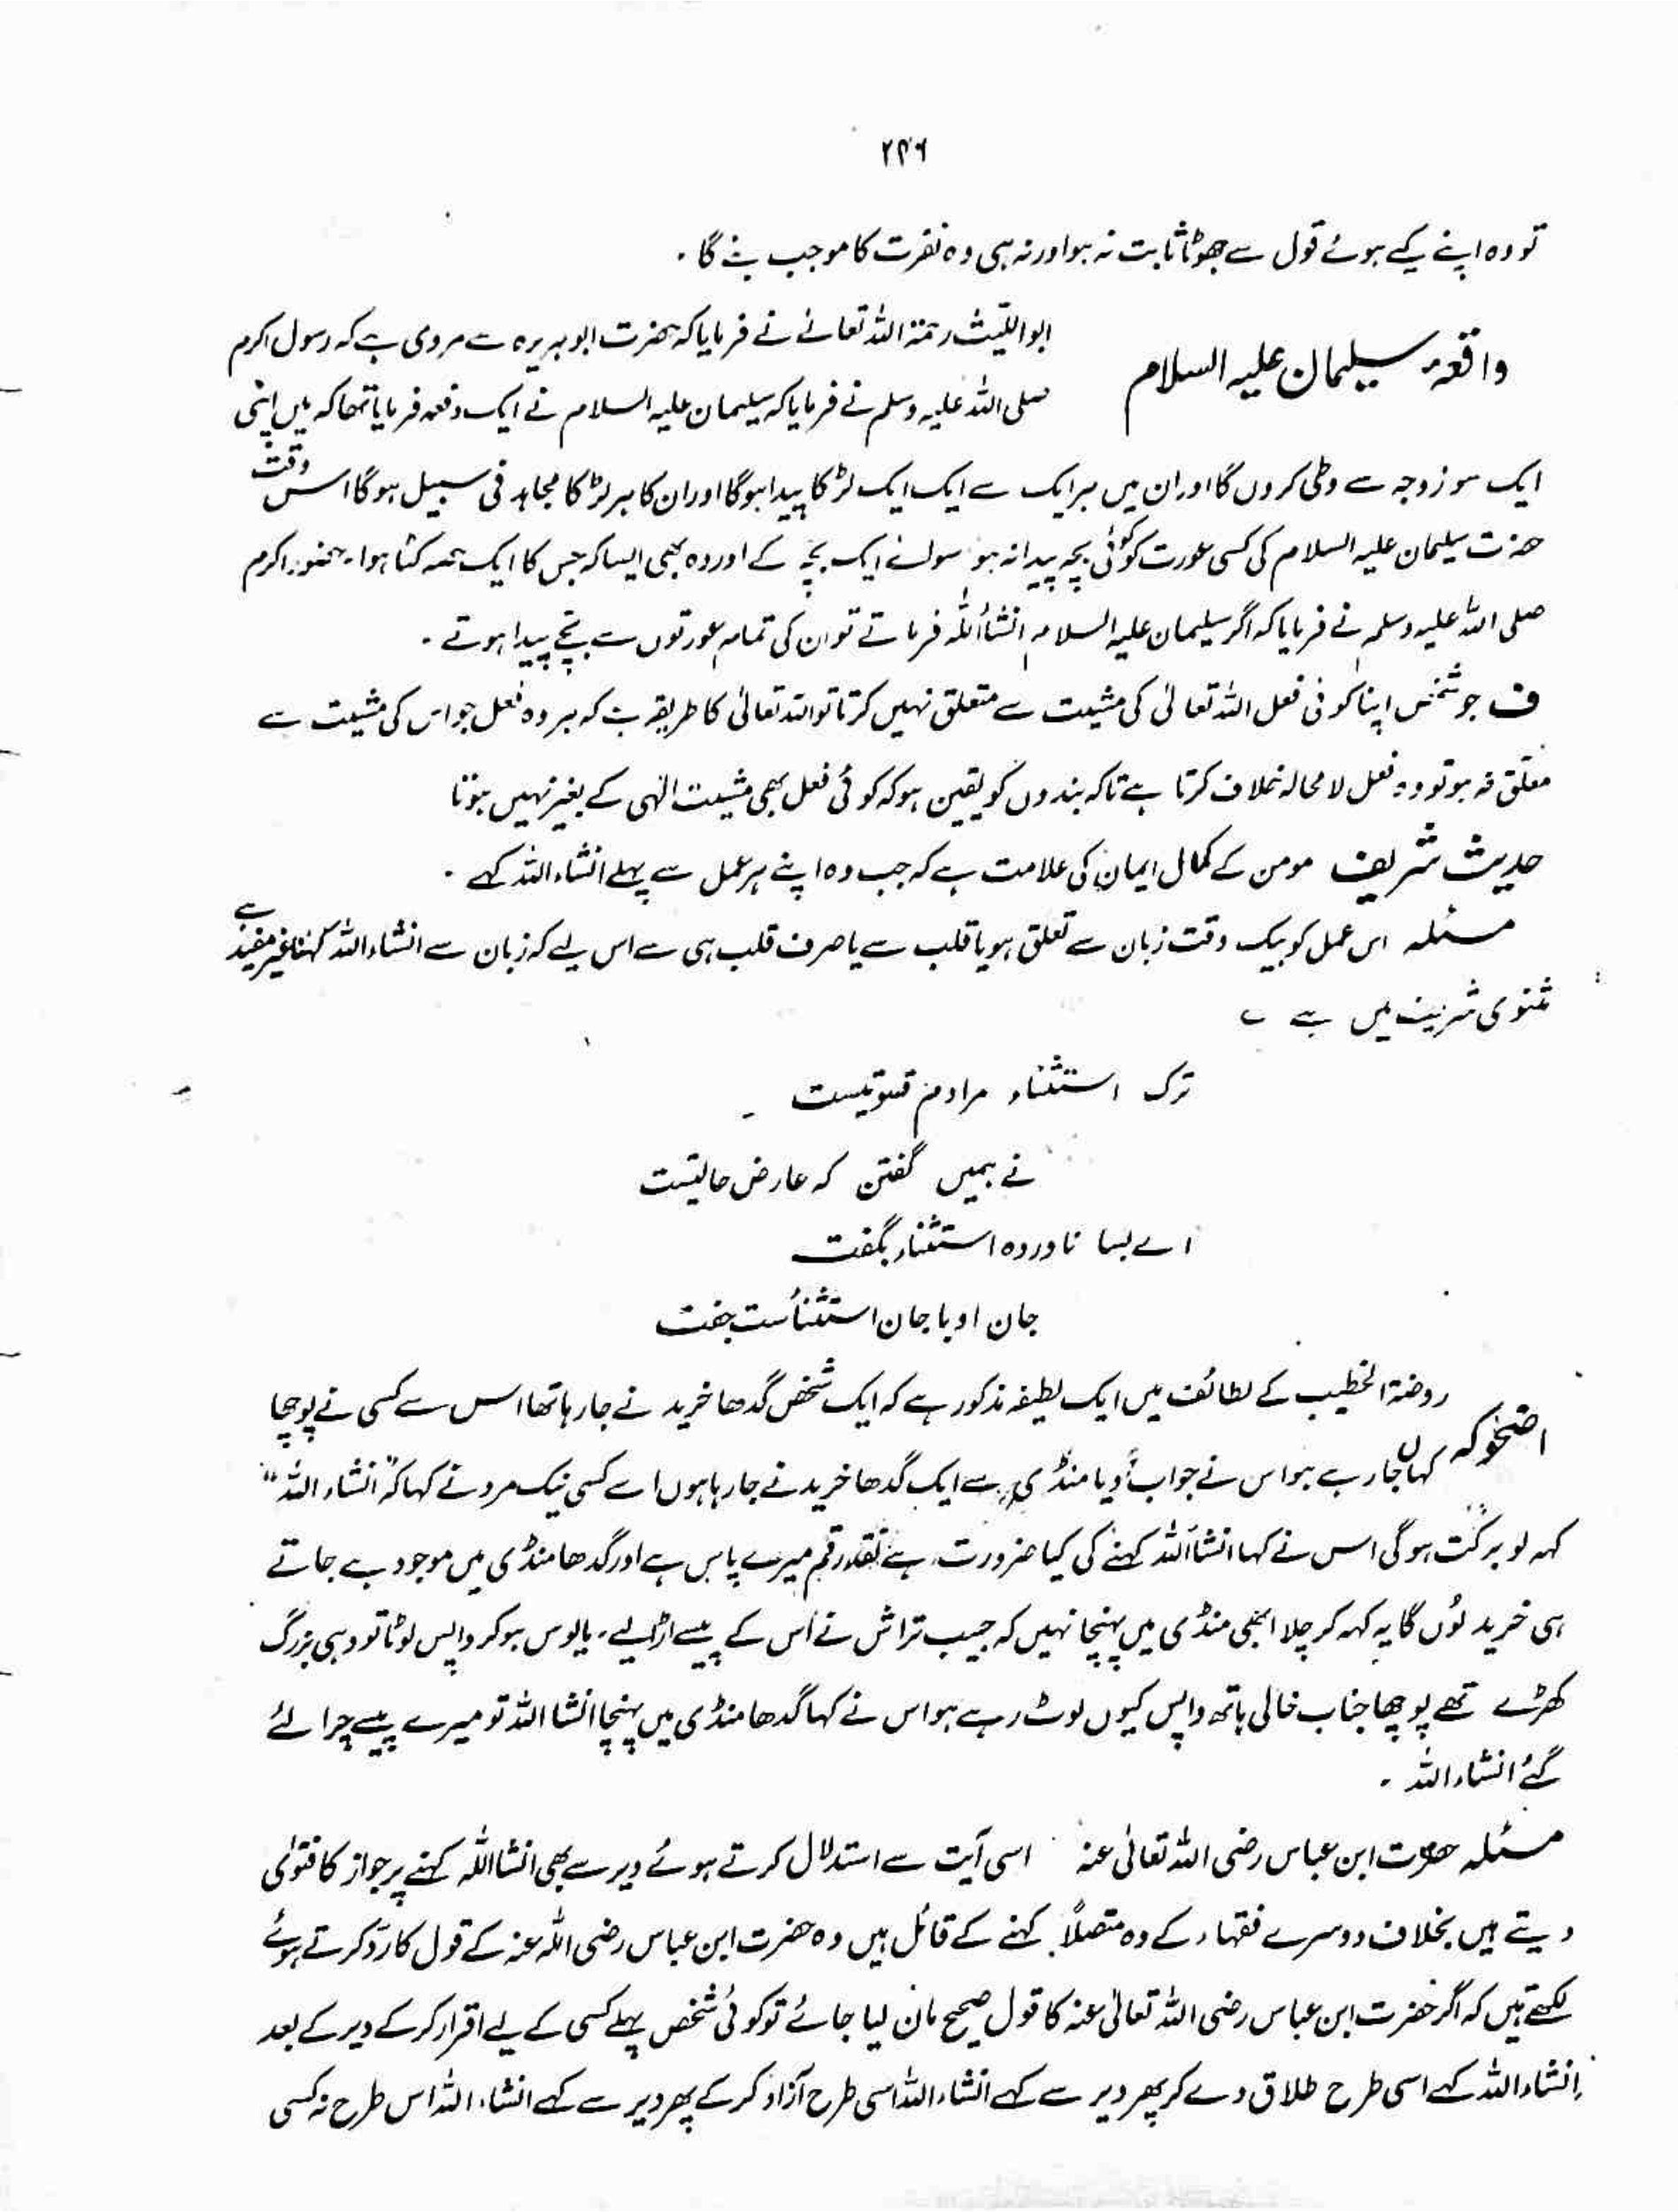 ۲۴۶
تو وہ اپنے کیے ہوئے قول سے جھوٹا ثابت نہ ہوا ور نہ ہی وہ نفرت کا موجب بنے گا ۔
واقعہ سلیمان علیہ السلام
ابواللیث رحمۃ اللہ تعالےٰ نے فرمایا کہ حضرت ابوہریرہ سے مروی ہے کہ رسول اکرم
صلی اللہ علیہ وسلم نے فرمایا کہ سلیمان علیہ السلام نے ایک دفعہ فرمایا تھا کہ میں اپنی
ایک سو زوجہ سے وطی کروں گا اور ان میں ہر ایک سے ایک ایک لڑکا پیدا ہوگا اور ان کا ہر لڑکا مجاہد فی سبیل ہوگا اس وقت
حضرت سلیمان علیہ السلام کی کسی عورت کو کوئی بچہ پیدا نہ ہو سوائے ایک بچہ کے اور وہ بھی ایسا کہ جس کا ایک حصہ کٹا ہوا ۔ حضور اکرم
صلی اللہ علیہ وسلم نے فرمایا کہ اگر سلیمان علیہ السلام انشأاللہ فرماتے تو ان کی تمام عورتوں سے بچے پیدا ہوتے ۔
ف جو شخص اپنا کوئی فعل اللہ تعالیٰ کی مشیت سے متعلق نہیں کرتا تو اللہ تعالیٰ کا طریقہ ہے کہ ہر وہ فعل جو اس کی مشیت سے
معلق نہ ہو تو وہ فعل لا محالہ خلاف کرتا ہے تاکہ بندوں کو یقین ہو کہ کوئی فعل بھی مشیت الٰہی کے بغیر نہیں ہوتا
حدیث شریف مومن کے کمال ایمان کی علامت ہے کہ جب وہ اپنے ہر عمل سے پہلے انشاء اللہ کہے ۔
مسئلہ اس عمل کو بیک وقت زبان سے تعلق ہو یا قلب سے یا صرف قلب ہی سے اس لیے کہ زبان سے انشاء اللہ کہنا غیر مفید ہے
مثنوی شریف میں ہے ؎
ترک استثناء مرادم قسوتیست
نے ہمیں گفتن کہ عارض حالیتست
اے بسا ناوردہ استثناء بگفت
جان او با جان استثنأست جفت
اضحوکہ
روضۃ الخطیب کے لطائف میں ایک لطیفہ مذکور ہے کہ ایک شخص گدھا خرید نے جا رہا تھا اس سے کسی نے پوچھا
کہاں جا رہے ہو اس نے جواب دیا منڈی سے ایک گدھا خرید نے جا رہا ہوں اسے کسی نیک مرد نے کہا کہ "انشاء اللہ"
کہہ لو برکت ہوگی اس نے کہا انشأاللہ کہنے کی کیا ضرورت ہے نقد رقم میرے پاس ہے اور گدھا منڈی میں موجود ہے جاتے
ہی خرید لوں گا یہ کہہ کر چلا ابھی منڈی میں پہنچا نہیں کہ جیب تراش نے اس کے پیسے اڑا لیے ۔ مایوس ہو کر واپس لوٹا تو وہی بزرگ
کھڑے تھے پوچھا جناب خالی ہاتھ واپس کیوں لوٹ رہے ہو اس نے کہا گدھا منڈی میں پہنچا انشا اللہ تو میرے پیسے چرا لئے
گئے انشاء اللہ ۔
مسئلہ حضرت ابن عباس رضی اللہ تعالیٰ عنہ اسی آیت سے استدلال کرتے ہوئے دیر سے بھی انشااللہ کہنے پر جواز کا فتویٰ
دیتے ہیں بخلاف دوسرے فقہاء کے وہ متصلاً کہنے کے قائل ہیں وہ حضرت ابن عباس رضی اللہ عنہ کے قول کا ردّ کرتے ہوئے
لکھتے ہیں کہ اگر حضرت ابن عباس رضی اللہ تعالیٰ عنہ کا قول صحیح مان لیا جائے تو کوئی شخص پہلے کسی کے لیے اقرار کر کے دیر کے بعد
انشاء اللہ کہے اسی طرح طلاق دے کر پھر دیر سے کہے انشاء اللہ اسی طرح آزاد کر کے پھر دیر سے کہے انشاء اللہ اس طرح نہ کسی